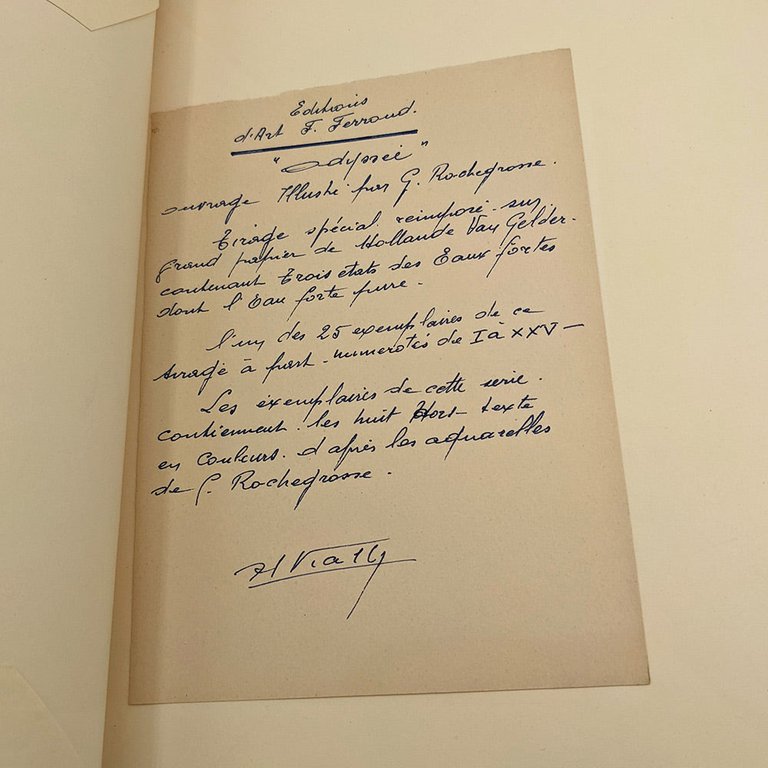 Editions
d'Art F. Ferroud.
"Odyssée"
ouvrage Illustré par G. Rochegrosse.
Tirage spécial reimposé sur
grand papier de Hollande Van Gelder.
contenant trois états des Eaux fortes
dont l'Eau forte pure.
l'un des 25 exemplaires de ce
tirage à part. numerotés de I à XXV —
Les exemplaires de cette serie.
contiennent. les huit Hors texte
en couleurs. d'après les aquarelles
de G. Rochegrosse.